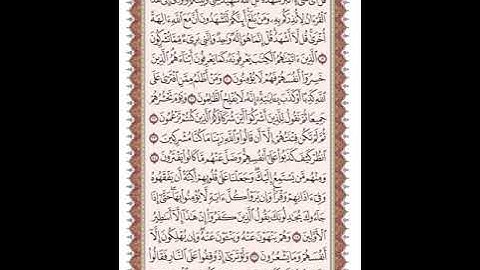 ٱلْقُرْءَانُ لِأُنذِرَكُم بِهِۦ وَمَنۢ بَلَغَ أَئِنَّكُمْ لَتَشْهَدُونَ أَنَّ مَعَ ٱللَّهِ ءَالِهَةً
أُخْرَىٰ قُل لَّآ أَشْهَدُ قُلْ إِنَّمَا هُوَ إِلَٰهٌ وَٰحِدٌ وَإِنَّنِى بَرِىٓءٌ مِّمَّا تُشْرِكُونَ
ٱلَّذِينَ ءَاتَيْنَٰهُمُ ٱلْكِتَٰبَ يَعْرِفُونَهُۥ كَمَا يَعْرِفُونَ أَبْنَآءَهُمُ ٱلَّذِينَ
خَسِرُوٓا۟ أَنفُسَهُمْ فَهُمْ لَا يُؤْمِنُونَ وَمَنْ أَظْلَمُ مِمَّنِ ٱفْتَرَىٰ عَلَى
ٱللَّهِ كَذِبًا أَوْ كَذَّبَ بِـَٔايَٰتِهِۦٓ إِنَّهُۥ لَا يُفْلِحُ ٱلظَّٰلِمُونَ وَيَوْمَ نَحْشُرُهُمْ
جَمِيعًا ثُمَّ نَقُولُ لِلَّذِينَ أَشْرَكُوٓا۟ أَيْنَ شُرَكَآؤُكُمُ ٱلَّذِينَ كُنتُمْ تَزْعُمُونَ
ثُمَّ لَمْ تَكُن فِتْنَتُهُمْ إِلَّآ أَن قَالُوا۟ وَٱللَّهِ رَبِّنَا مَا كُنَّا مُشْرِكِينَ
ٱنظُرْ كَيْفَ كَذَبُوا۟ عَلَىٰٓ أَنفُسِهِمْ وَضَلَّ عَنْهُم مَّا كَانُوا۟ يَفْتَرُونَ
وَمِنْهُم مَّن يَسْتَمِعُ إِلَيْكَ وَجَعَلْنَا عَلَىٰ قُلُوبِهِمْ أَكِنَّةً أَن يَفْقَهُوهُ
وَفِىٓ ءَاذَانِهِمْ وَقْرًا وَإِن يَرَوْا۟ كُلَّ ءَايَةٍ لَّا يُؤْمِنُوا۟ بِهَا حَتَّىٰٓ إِذَا
جَآءُوكَ يُجَٰدِلُونَكَ يَقُولُ ٱلَّذِينَ كَفَرُوٓا۟ إِنْ هَٰذَآ إِلَّآ أَسَٰطِيرُ
ٱلْأَوَّلِينَ وَهُمْ يَنْهَوْنَ عَنْهُ وَيَنْـَٔوْنَ عَنْهُ وَإِن يُهْلِكُونَ إِلَّآ
أَنفُسَهُمْ وَمَا يَشْعُرُونَ وَلَوْ تَرَىٰٓ إِذْ وُقِفُوا۟ عَلَى ٱلنَّارِ فَقَالُوا۟